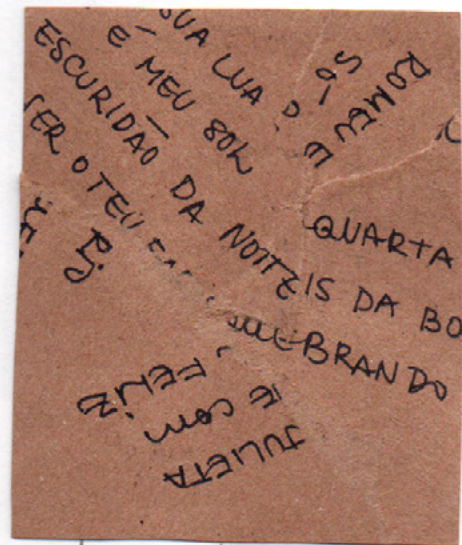 SUA LUA
É MEU SOL
ESCURIDÃO DA NOITE
SER O TEU
ROMEU E
QUARTA
IS DA BO
QUEBRANDO
FELIZ
E COM
JULIETA